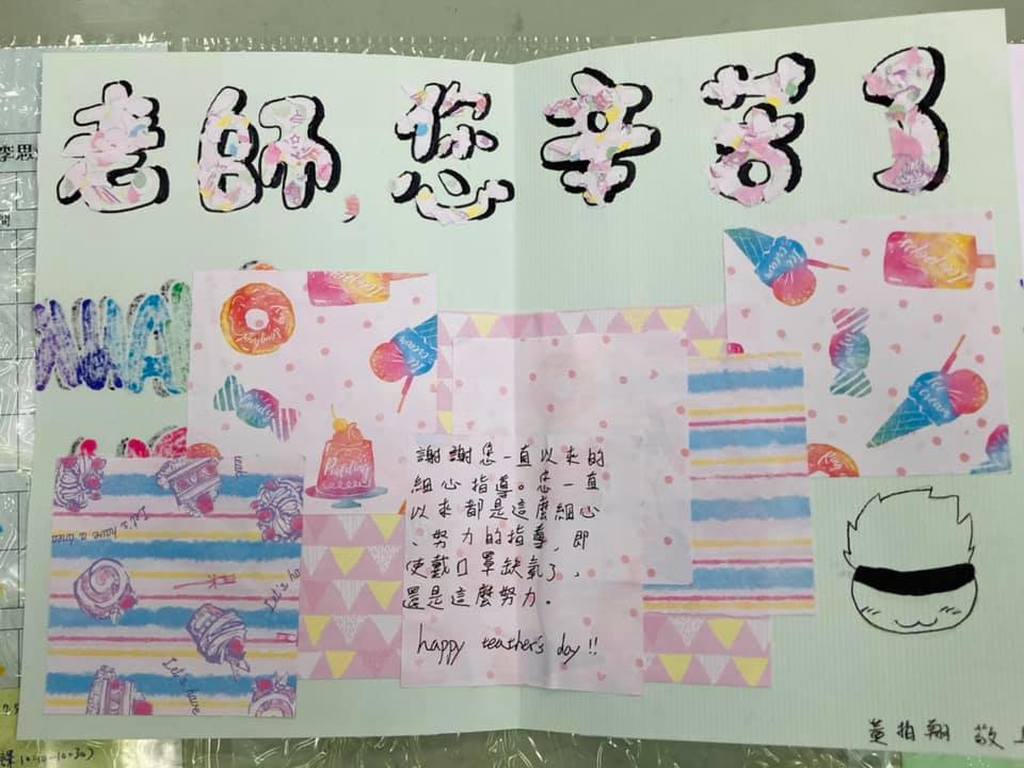 老師,您辛苦了
謝謝您一直以來的
細心指導。您一直
以來都是這麼細心
、努力的指導,即
使戴口罩缺氧了,
還是這麼努力。
happy teather's day!!
Pudding
Candy
Ice cream
Ice cream
Ice cream
Let's have a
Let's ha
Let's have
黃柏翔 敬上
李思
間